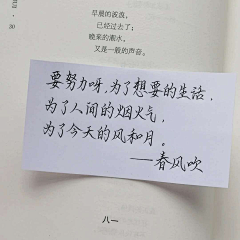 早晨的波浪，
已经过去了；
晚来的潮水，
又是一般的声音。
30
要努力呀，为了想要的生活，
为了人间的烟火气，
为了今天的风和月。
——春风吹
八一